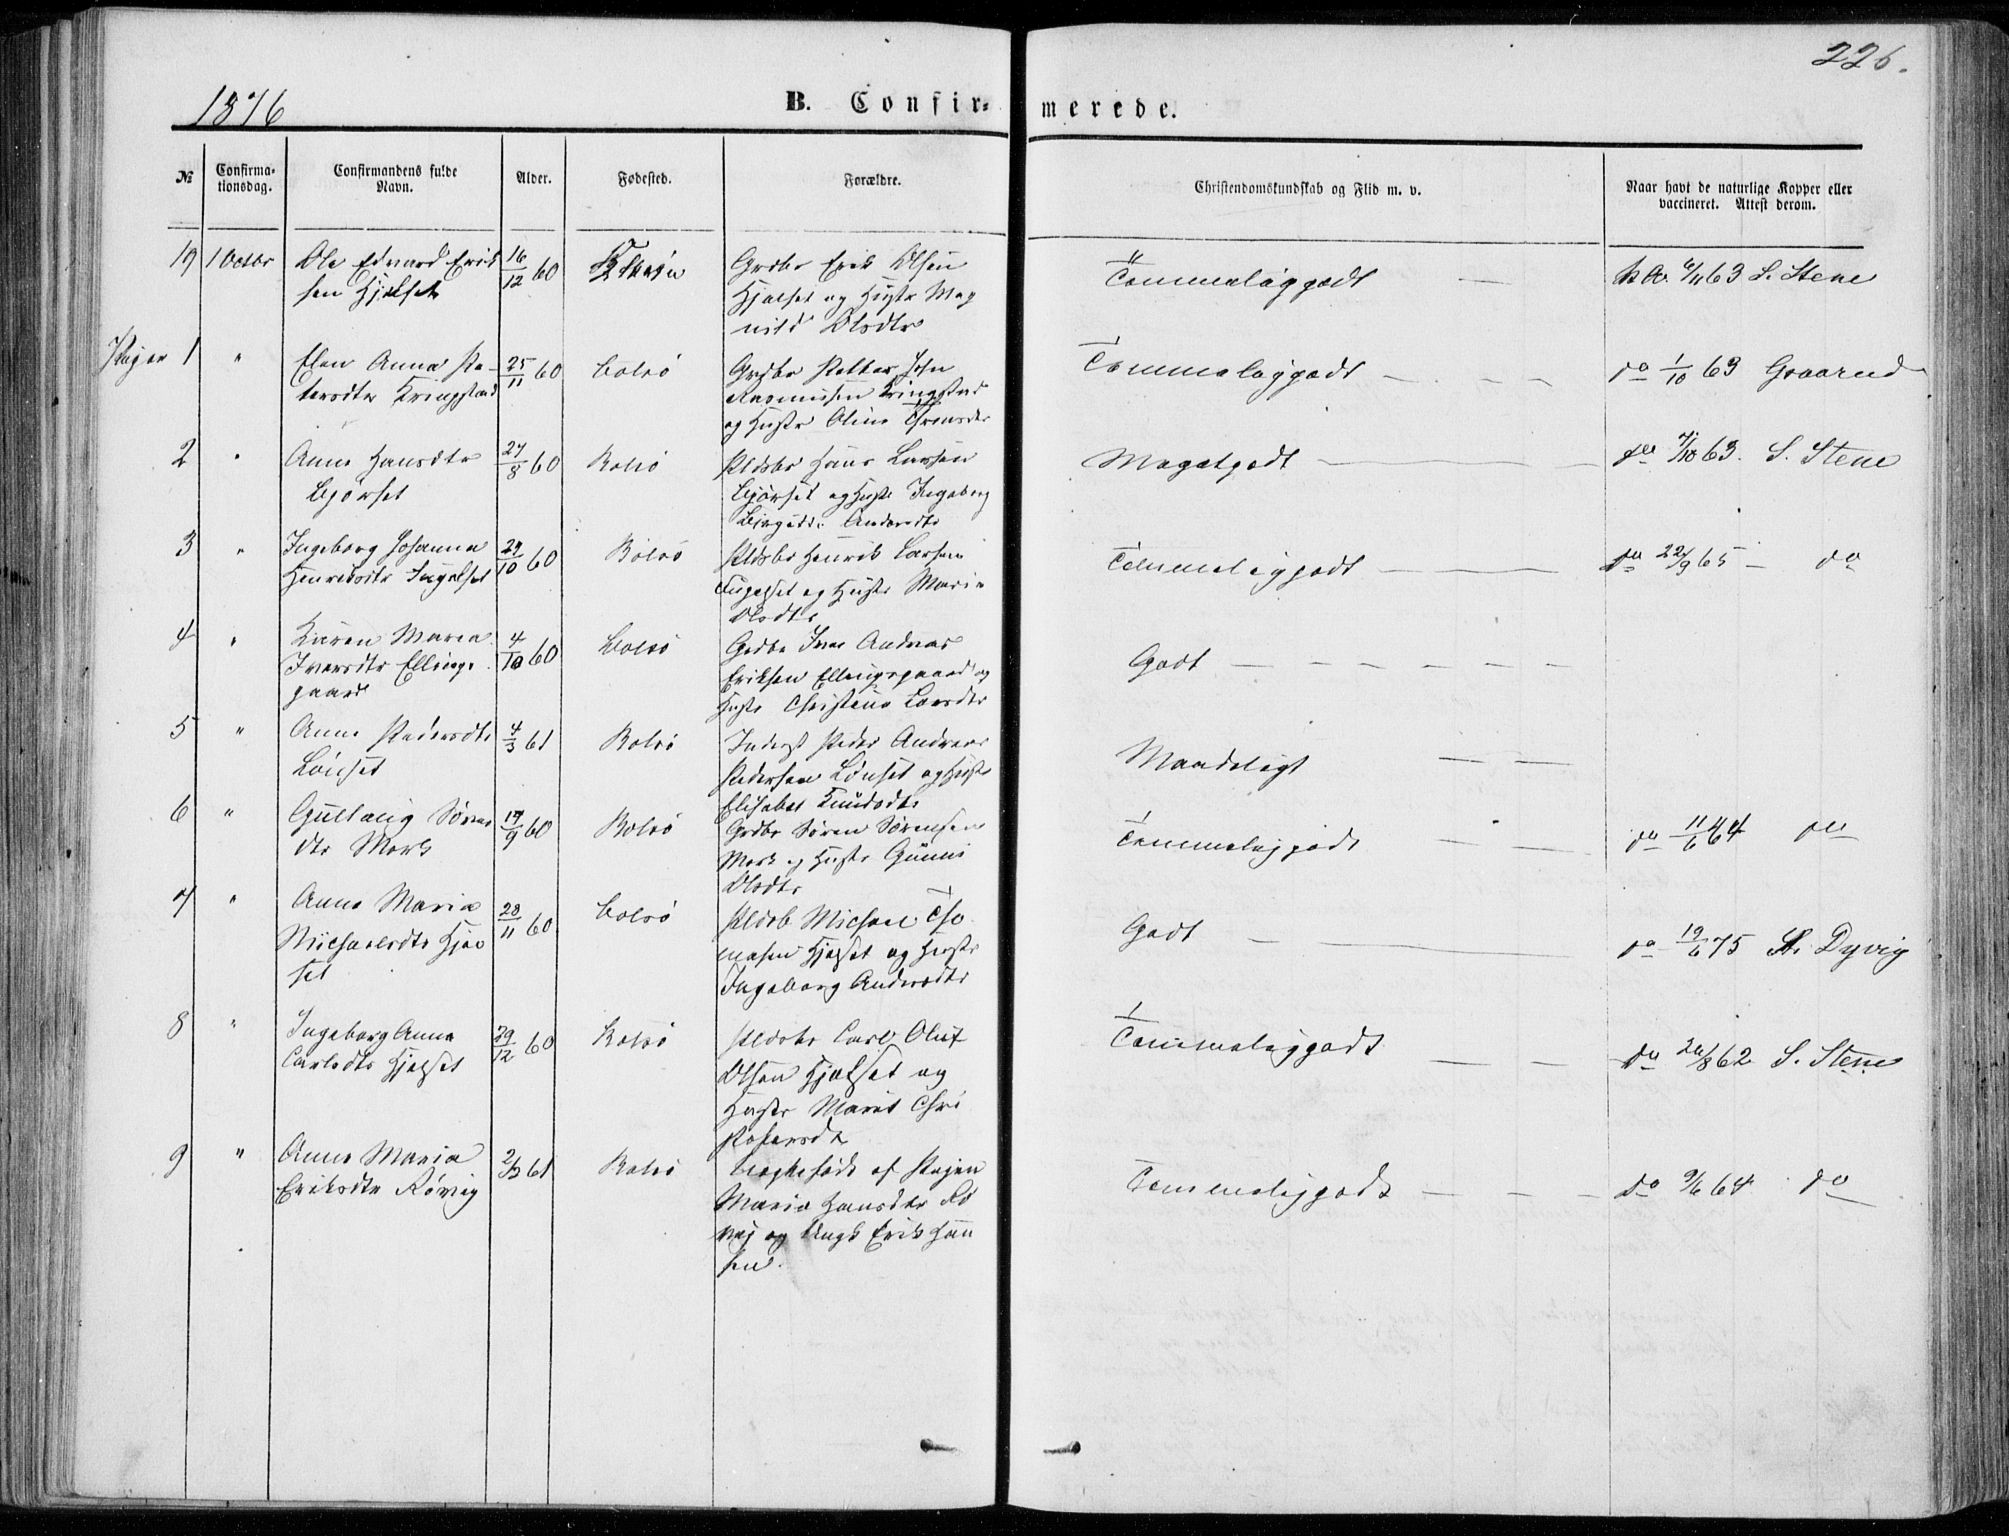 226.
1876
B. Confir-
merede.
№
Confirma-
tionsdag.
Confirmandens fulde
Navn.
Alder.
Fødested.
Forældre.
Christendomskundskab og Flid m. v.
Naar havt de naturlige Kopper eller
vaccineret. Attest derom.
19 1 Octbr Ole Edvard Erik
sen Hjelset
16/12 60
Grdbr Erik Olsen
Hjelset og Hustr Mag
nild Olsdtr
Temmeliggodt
63 S. Stene
Piger 1 " Elen Anna Pe-
tersdtr Kringstad
25/11 60
Bolsö
Grdbr Petter John
Rasmussen Kringstad
og Hustr Oline
Temmeliggodt
do 1/10 63 Graarud
2 " Anne Hansdtr
Bjørset
27/8 60
Bolsö
Pldsbr Hans Larsen
Bjørset og Hustr Ingeborg
Andersdtr
Megetgodt
do 63. S. Stene
3 " Ingeborg Johanna
Henriksdtr Fugelset
29/10 60
Bolsö
Pldsbr Henrik Larsen
Fugelset og Hustr Marie
Olsdtr
Temmeliggodt
do 22/9 65 — do
4 " Karen Maria
Iversdtr Ellings
gaard
4/10 60
Bolsö
Grdbr Iver Andreas
Eriksen Ellingsgaard og
Hustr Christina Larsdtr
Godt
5 " Anne Pedersdtr
Lönset
4/3 61
Bolsö
Inderst Peder Andreas
Pedersen Lönset og Hustr
Elisabet Knudsdtr
Maadeligt
6 " Gullaug Sörens
dtr Mork
60
Bolsö
Grdbr Sören Sörensen
Mork og Hustr Gunni
Olsdtr
Temmeliggodt
do 11/6 64 do
7 " Anne Maria
Michaelsdtr Hjel
set
28/11 60
Bolsö
Pldsb Michael Tho
masen Hjelset og Hustr
Ingeborg Andersdtr
Godt
do 19/6 75 Dyvig
8 " Ingeborg Anna
Carlsdtr Hjelset
29/12 60
Bolsö
Pldsbr Carl Oluf
Olsen Hjelset og
Hustr Marit Chri
stofersdtr
Temmeliggodt
do 62 S. Stene
9 " Anne Maria
Eriksdtr Rövig
2/3 61
Bolsö
Uægtefödt af Pigen
Maria Hansdtr Rö
vig og Ungk Erik Han
sen.
Temmeliggodt
do 9/6 64 do